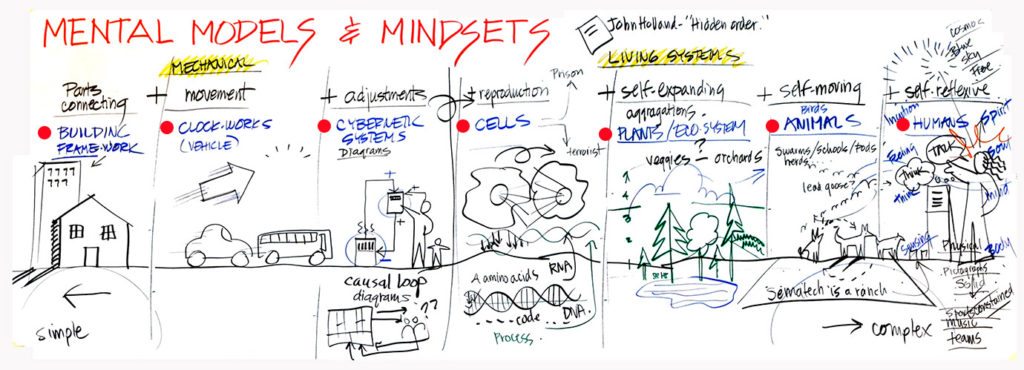 MENTAL MODELS & MINDSETS
John Holland - "Hidden order."
MECHANICAL
LIVING SYSTEMS
Cosmos
Blue
Sky
Free
Parts
connecting
BUILDING
FRAME-WORK
+ movement
CLOCK-WORKS
(VEHICLE)
+ adjustments
CYBERNETIC
SYSTEMS
Diagrams
+
-
causal loop
diagrams
??
Prison
+ reproduction
CELLS
terrorist
Aminoacids
RNA
code
DNA
Process
+ self-expanding
aggragations
PLANTS/ECO-SYSTEM
?
veggies - orchards
4
3
2
1
+ self-moving
Birds
ANIMALS
Swarms/schools/pods
herds
lead goose?
Sematech is a ranch
+ self-reflexive
Intuition
HUMANS
Spirit
Feeling
TALK
Soul
Think
think
mind
sensing
Physical
Body
Pictograms
Solid
constrained
music
teams
simple
complex